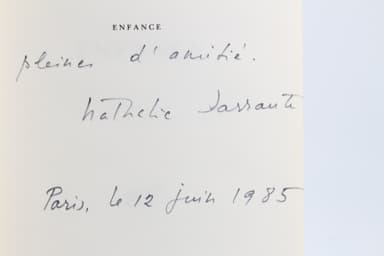 ENFANCE
pleines d'amitié.
Nathalie Sarraute
Paris, le 12 juin 1985